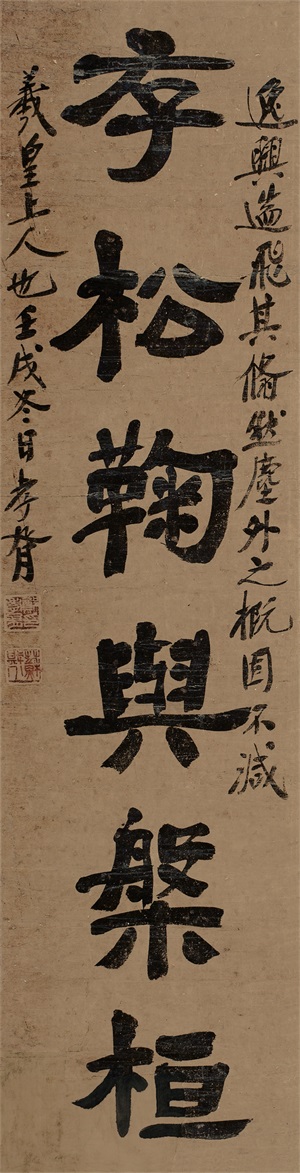 逸興遄飛其翛然塵外之概固不減
存松鞠與槃桓
羲皇上人也壬戌冬日孝胥